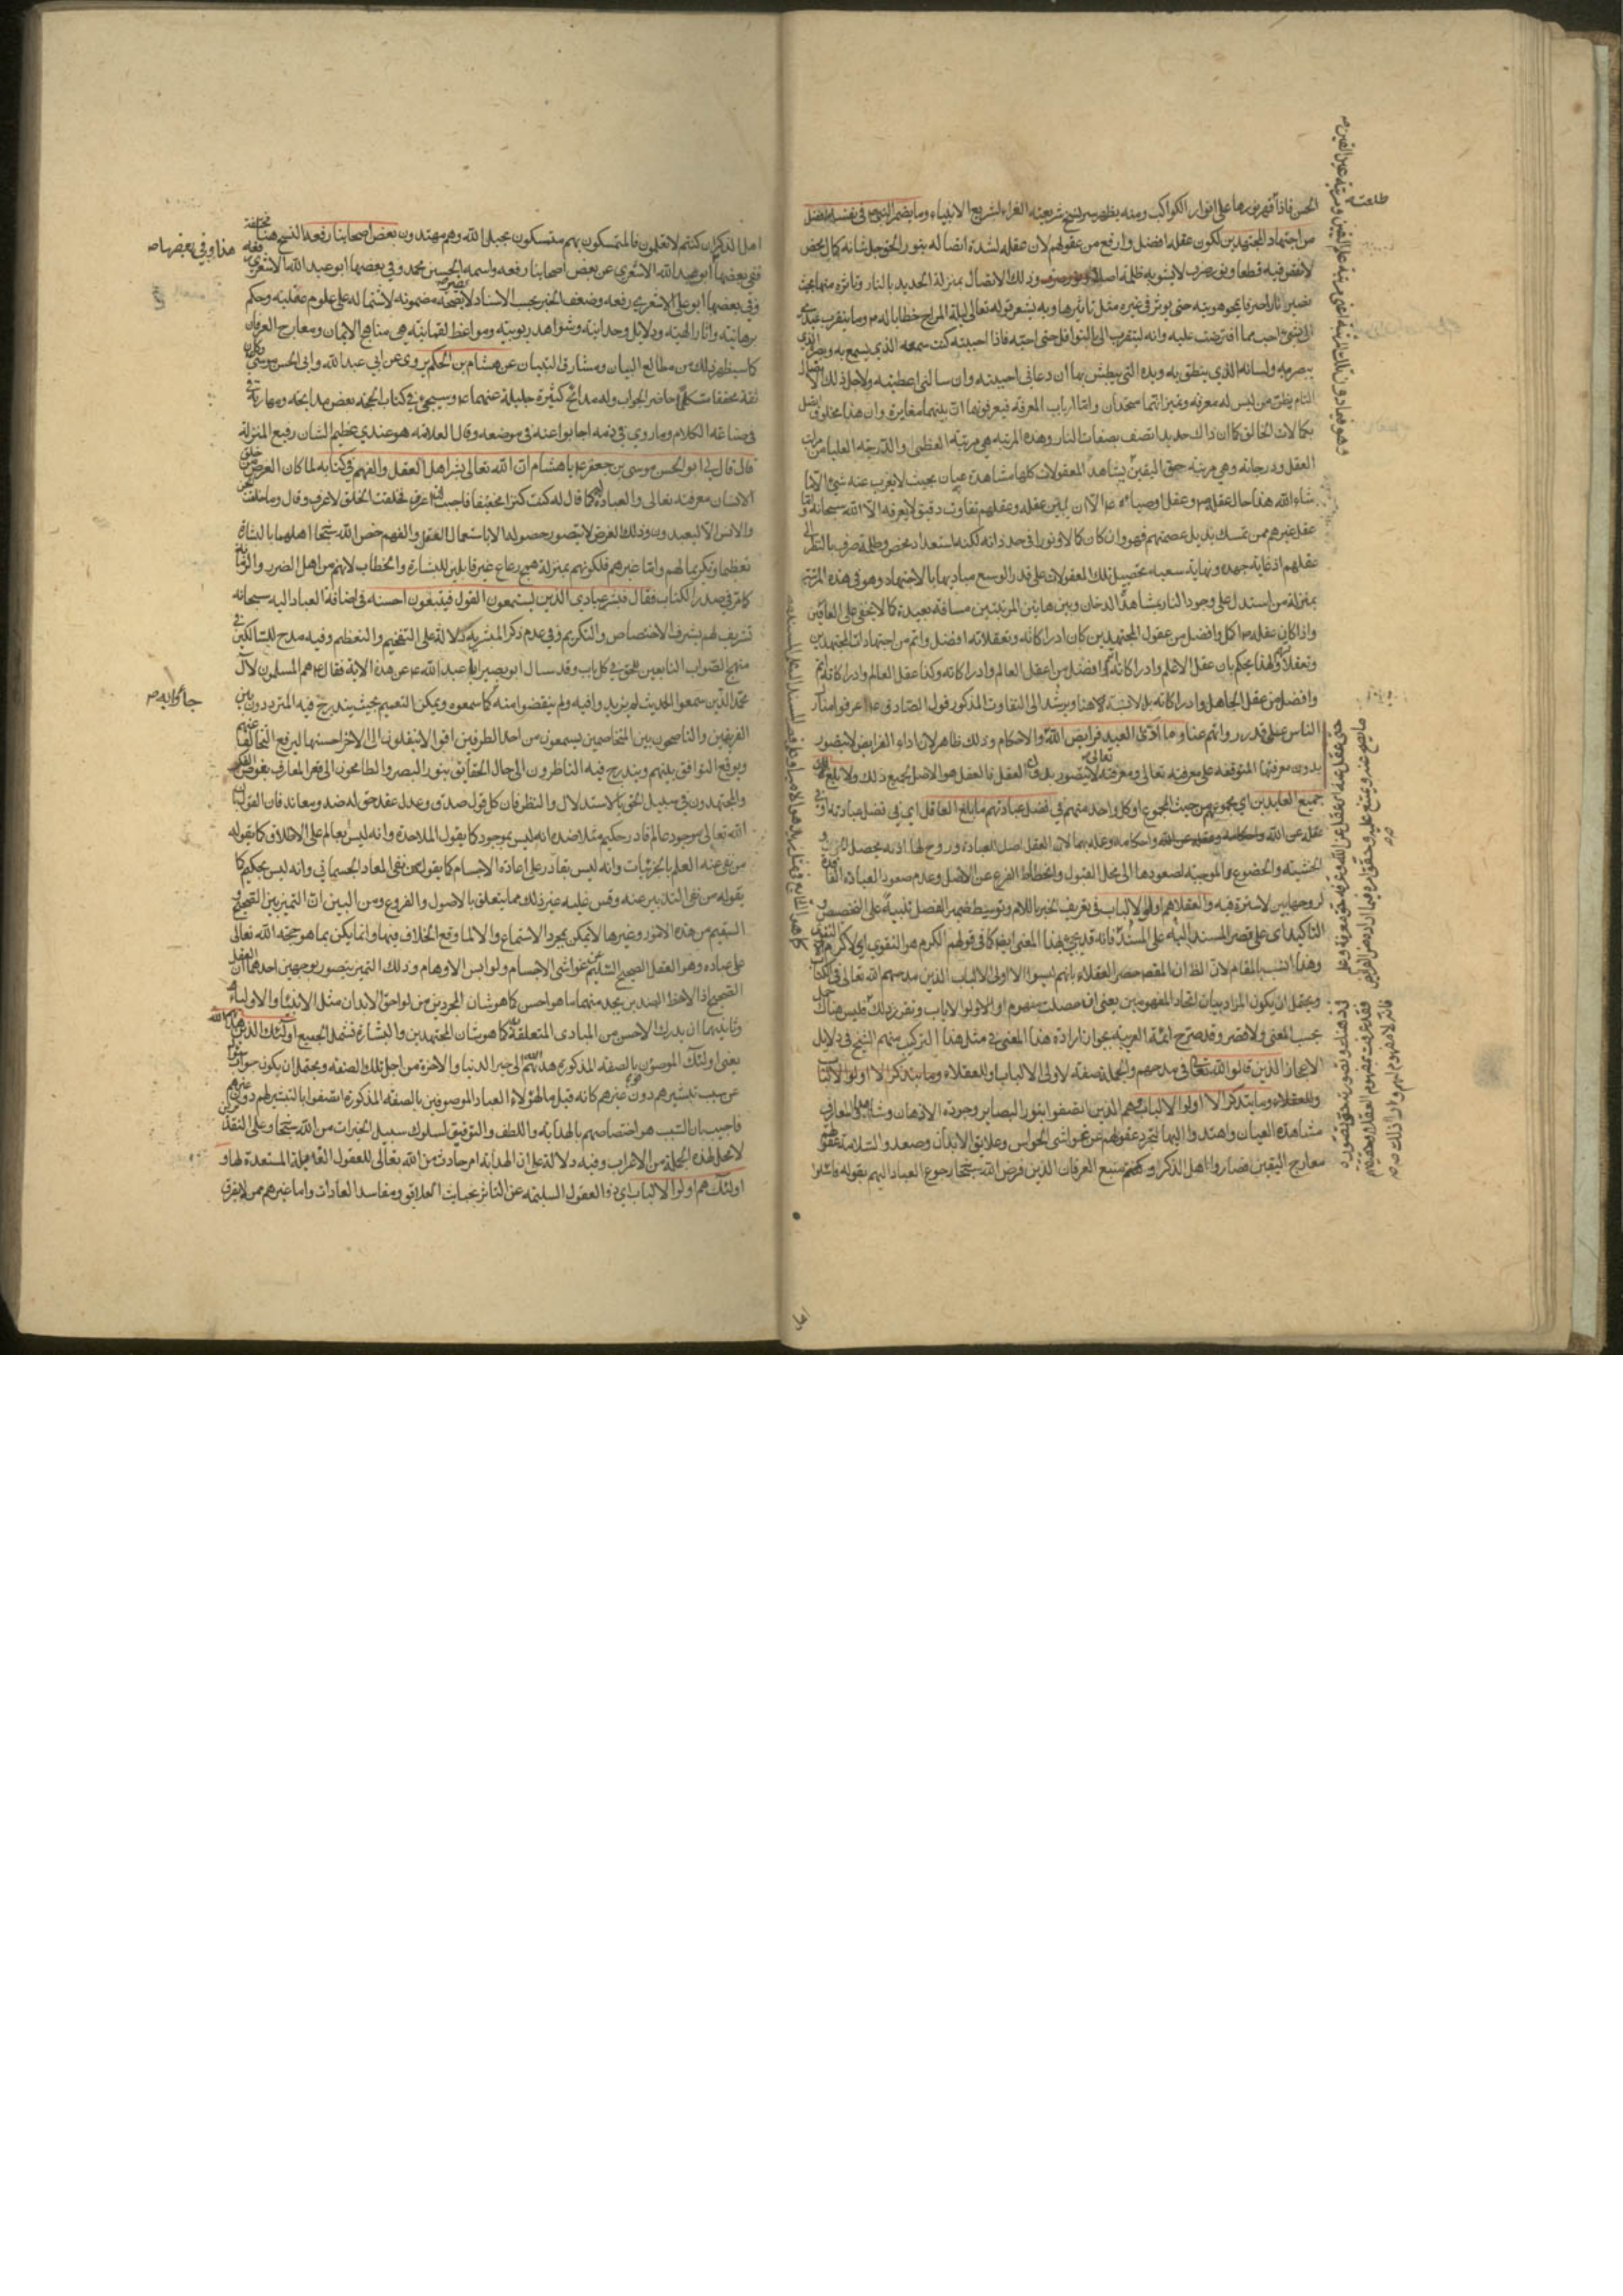 الحسن فاذا قهر نورها على انوار الكواكب ومنه يظهر سر نسخ شريعته الغراء لشرايع الانبياء وما يضمر النبي في نفسه افضل
من اجتهاد المجتهدين لكون عقله افضل وارفع من عقولهم لان عقله لشدة اتصاله بنور الحق جل شانه كمال محض
لا نقص فيه قطعا ونور صرف لا يشوبه ظلمة اصلا وذلك الاتصال بمنزلة الحديد بالنار وتاثره منها بحيث
يصير نارا صرفا بمحو هويته حتى يوثر في غيره مثل تاثيرها وبه يشعر قوله تعالى ليلة المعراج خطابا له وما يتقرب عبدي
الى بشيء احب مما افترضت عليه وانه ليتقرب الي بالنوافل حتى احبه فاذا احببته كنت سمعه الذي يسمع به وبصره الذي
يبصر به ولسانه الذي ينطق به ويده التي يبطش بها ان دعاني اجبته وان سالني اعطيته ولاجل ذلك الاتصال
التام يظن من ليس له معرفة وتميز انهما متحدان واما ارباب المعرفة فيعرفون ان بينهما مغايرة وان هذا مخلوق اتصل
بكمالات الخالق كما ان ذاك حديد اتصف بصفات النار وهذه المرتبة هي مرتبة العظمى والدرجة العليا من مراتب
العقل ودرجاته وهي مرتبة حق اليقين يشاهد المعقولات كلها مشاهدة عيان بحيث لا يغرب عنه شيء الا ما
شاء الله هذا حال عقله وعقل اوصيائه الا ان بين عقله وعقلهم تفاوت دقيق لا يعرفه الا الله سبحانه واما
عقل غيرهم ممن تمسك بذيل عصمتهم فهو وان كان كاملا ونورا في حد ذاته لكنه استعداد محض وظلمة صرف بالنظر الى
عقلهم اذ غاية جهده ونهاية سعيه تحصيل تلك المعقولات على قدر الوسع مباديها بالاجتهاد وهو في هذه المرتبة
بمنزلة من استدل على وجود النار بمشاهدة الدخان وبين هاتين المرتبتين مسافة بعيدة كما لا يخفى على العارفين
واذا كان عقله اكمل وافضل من عقول المجتهدين كان ادراكاته وتعقلاته افضل واتم من اجتهادات المجتهدين
وتعقلاتهم ولهذا يحكم بان عقل الاعلم وادراكاته افضل من عقل العالم وادراكاته وكذا عقل العالم وادراكاته اتم
وافضل من عقل الجاهل وادراكاته بل لا نسبة هنا ويرشد الى التفاوت المذكور قول الصادق اعرفوا منازل
الناس على قدر روايتهم عنا وما ادى العبد فرايض الله والاحكام وذلك ظاهر لان اداء الفرايض لا يتصور
بدون معرفتها المتوقفة على معرفته تعالى ومعرفته تعالى لا يتصور بدون العقل فالعقل هو الاصل لجميع ذلك ولا بلغ
جميع العابدين اي مجموعهم من حيث المجموع او كل واحد منهم في فضل عبادتهم ما بلغ العاقل اي في فضل عبادته او في
عقله عن الله واحكامه وعمله بها لان العقل اصل العبادة وروح لها اذ به يحصل
الخشية والخضوع الموجبة لصعودها الى محل القبول وانحطاط الفرع عن الاصل وعدم صعود العبادة الفاقدة
لروحها بين لا سترة فيه والعقلاء هم اولو الالباب في تعريف الخبر باللام وتوسيط ضمير الفصل تنبيه على التخصيص و
التاكيد اي على قصر المسند اليه على المسند فانه قد يجيء لهذا المعنى ايضا كما في قولهم الكرم هو التقوى اي لا كرم الا التقوى
وهذا انسب بالمقام لان الظ ان المقصود حصر العقلاء بانهم ليسوا الا اولي الالباب الذين مدحهم الله تعالى في كتابه
ويحتمل ان يكون المراد بيان اتحاد المفهومين يعني اذا حصلت مفهوم اولو الالباب وتقرر ذلك فليس هناك حمل
بحسب المعنى ولا قصر وقد صرح ائمة العربية بجواز ارادة هذا المعنى في مثل هذا التركيب منهم الشيخ في دلايل
الاعجاز الذين قال الله تعالى في مدحهم والجملة صفة لاولي الالباب والعقلاء وما يتذكر الا اولو الالباب
والعقلاء وما يتذكر الا اولو الالباب هم الذين اتصفوا بنور البصاير وجودة الاذهان وشاهدوا المعارف
مشاهدة العيان واهتدوا اليها لتجرد عقولهم عن غواشي الحواس وعلايق الابدان وصعدوا لسلامة عقولهم
معارج اليقين فصاروا اهل الذكر ومنبع العرفان الذين فرض الله سبحانه رجوع العباد اليهم بقوله فاسئلوا
طلعت
اهل الذكر ان كنتم لا تعلمون فالمتمسكون بهم متمسكون بحبل الله وهم مهتدون بعض اصحابنا رفعه النسخ هنا مختلفة
ففي بعضها ابو عبد الله الاشعري عن بعض اصحابنا رفعه واسمه الحسين بن محمد وفي بعضها ابو عبد الله الاشعري رفعه
وفي بعضها ابو علي الاشعري رفعه وضعف الخبر بحسب الاسناد لا يضر بصحة مضمونه لاشتماله على علوم عقلية وحكم
برهانية واثار الهية ودلايل وحدانية وشواهد ربوبية ومواعظ لقمانية هي مناهج الايمان ومعارج العرفان
كما سيظهر ذلك من مطالع البيان ومشارق التبيان عن هشام بن الحكم يروي عن ابي عبد الله وابي الحسن موسى وكان
ثقة محققا متكلما حاضر الجواب وله مدائح كثيرة جليلة عنهما وسيجيء في كتاب الحجة بعض مدايحه ومهارته في
صناعة الكلام وما روي في ذمه اجابوا عنه في موضعه وقال العلامة هو عندي عظيم الشان رفيع المنزلة
قال قال لي ابو الحسن موسى بن جعفر يا هشام ان الله تعالى بشر اهل العقل والفهم في كتابه لما كان الغرض من خلق
الانسان معرفته تعالى والعبادة له كما قال كنت كنزا مخفيا فاحببت ان اعرف فخلقت الخلق لاعرف وقال وما خلقت الجن
والانس الا ليعبدون وذلك الغرض لا يتصور حصوله الا باستعمال العقل والفهم خص الله سبحانه اهلهما بالبشارة
تعظيما وتكريما لهم واما غيرهم فلكونهم بمنزلة همج رعاع غير قابلين للبشارة والخطاب لانهم من اهل الضرب والزمانة
كما مر في صدر الكتاب فقال فبشر عبادي الذين يستمعون القول فيتبعون احسنه في اضافة العباد اليه سبحانه
تشريف لهم بشرف الاختصاص والتكريم وفي عدم ذكر المبشر به دلالة على التفخيم والتعظيم وفيه مدح للسالكين في
منهج الصواب التابعين للحق في كل باب وقد سال ابو بصير ابا عبد الله عن هذه الاية فقال هم المسلمون لال
محمد الذين سمعوا الحديث لم يزيدوا فيه ولم ينقصوا منه كما سمعوه ويمكن التعميم بحيث يندرج فيه المترددون بين
الفريقين والناصحون بين المتخاصمين يسمعون من احد الطرفين اقوالا ينقلون الى الاخر احسنها ليرفع التخالف عنهم
ويوقع التوافق بينهم ويندرج فيه الناظرون الى جمال الحقايق بنور البصر والطامحون الى قعر المعارف بغوص الفكر
والمجتهدون في سبيل الحق بالاستدلال والنظر فان كل قول صدق وعدل عقد حق له ضد ومعاند فان القول بان
الله تعالى موجود عالم قادر حكيم مثلا ضده انه ليس بموجود كما يقول الملاحدة وانه ليس بعالم على الاطلاق كما يقوله
من نفى عنه العلم بالجزئيات وانه ليس بقادر على اعادة الاجسام كما يقوله من نفى المعاد الجسماني وانه ليس بحكيم كما
يقوله من نفى التدبير عنه وقس عليه غير ذلك مما يتعلق بالاصول والفروع ومن البين ان التميز بين الصحيح و
السقيم من هذه الامور وغيرها لا يمكن بمجرد الاستماع والا لما وقع الخلاف فيها وانما يمكن بما هو حجة الله تعالى
على عباده وهو العقل الصحيح السليم عن غواشي الاجسام ولوابس الاوهام وذلك التميز يتصور بوجهين احدهما ان العقل
الصحيح اذا لاحظ الضدين يجد منهما ما هو احسن كما هو شان المجردين من لواحق الابدان مثل الانبياء والاولياء
وثانيهما ان يدرك الاحسن من المبادي المتعلقة به كما هو شان المجتهدين والبشارة تشمل الجميع اولئك الذين هداهم الله
يعني اولئك الموصوفون بالصفة المذكورة هداهم الله الى خير الدنيا والاخرة من اجل تلك الصفة ويحتمل ان يكون جوابا
عن سبب تبشيرهم دون غيرهم كانه قيل ما لهؤلاء العباد الموصوفين بالصفة المذكورة اتصفوا بالتبشير لهم دون غيرهم
فاجيب بان السبب هو اختصاصهم بالهداية واللطف والتوفيق لسلوك سبيل الخيرات من الله سبحانه وعلى التقديرين
لا محل لهذه الجملة من الاعراب وفيه دلالة على ان الهداية امر حادث من الله تعالى للعقول القابلة المستعدة لها و
اولئك هم اولو الالباب اي ذوو العقول السليمة عن التاثر بخبايث العلايق ومفاسد العادات واما غيرهم ممن لا يفرق